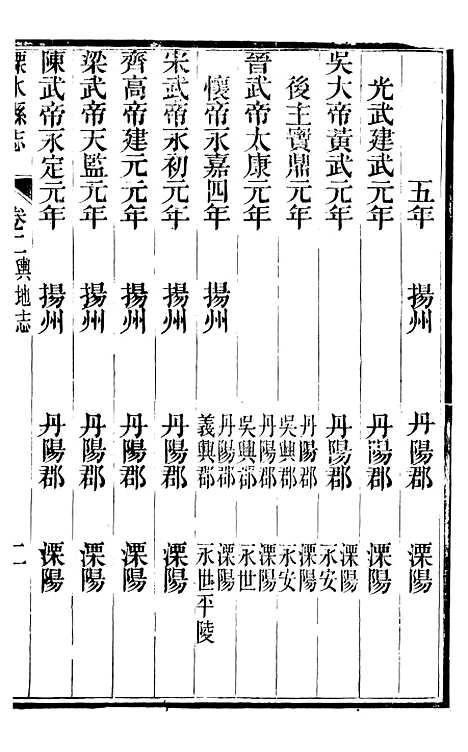 五年　揚州　丹陽郡　溧陽
光武建武元年　丹陽郡　溧陽
吳大帝黃武元年　丹陽郡　溧陽　永安
後主寶鼎元年　丹陽郡　吳興郡　溧陽　永安
晉武帝太康元年　丹陽郡　吳興郡　溧陽　永世
懷帝永嘉四年　揚州　丹陽郡　義興郡　溧陽　永世平陵
宋武帝永初元年　揚州　丹陽郡　溧陽
齊高帝建元元年　揚州　丹陽郡　溧陽
梁武帝天監元年　揚州　丹陽郡　溧陽
陳武帝永定元年　揚州　丹陽郡　溧陽
溧水縣志　卷二輿地志　二